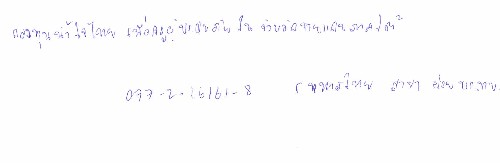 กองทุนน้ำใจไทย เพื่อครูผู้ประสบภัย ใน จังหวัดชายแดนภาคใต้
077-2-16161-8 ( ทหารไทย สาขา